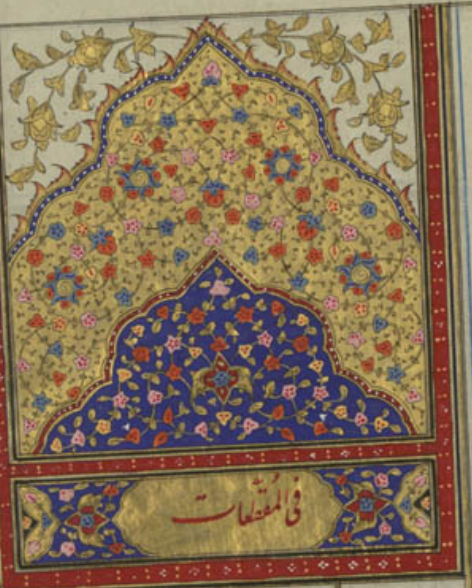 فی المُقطّعات